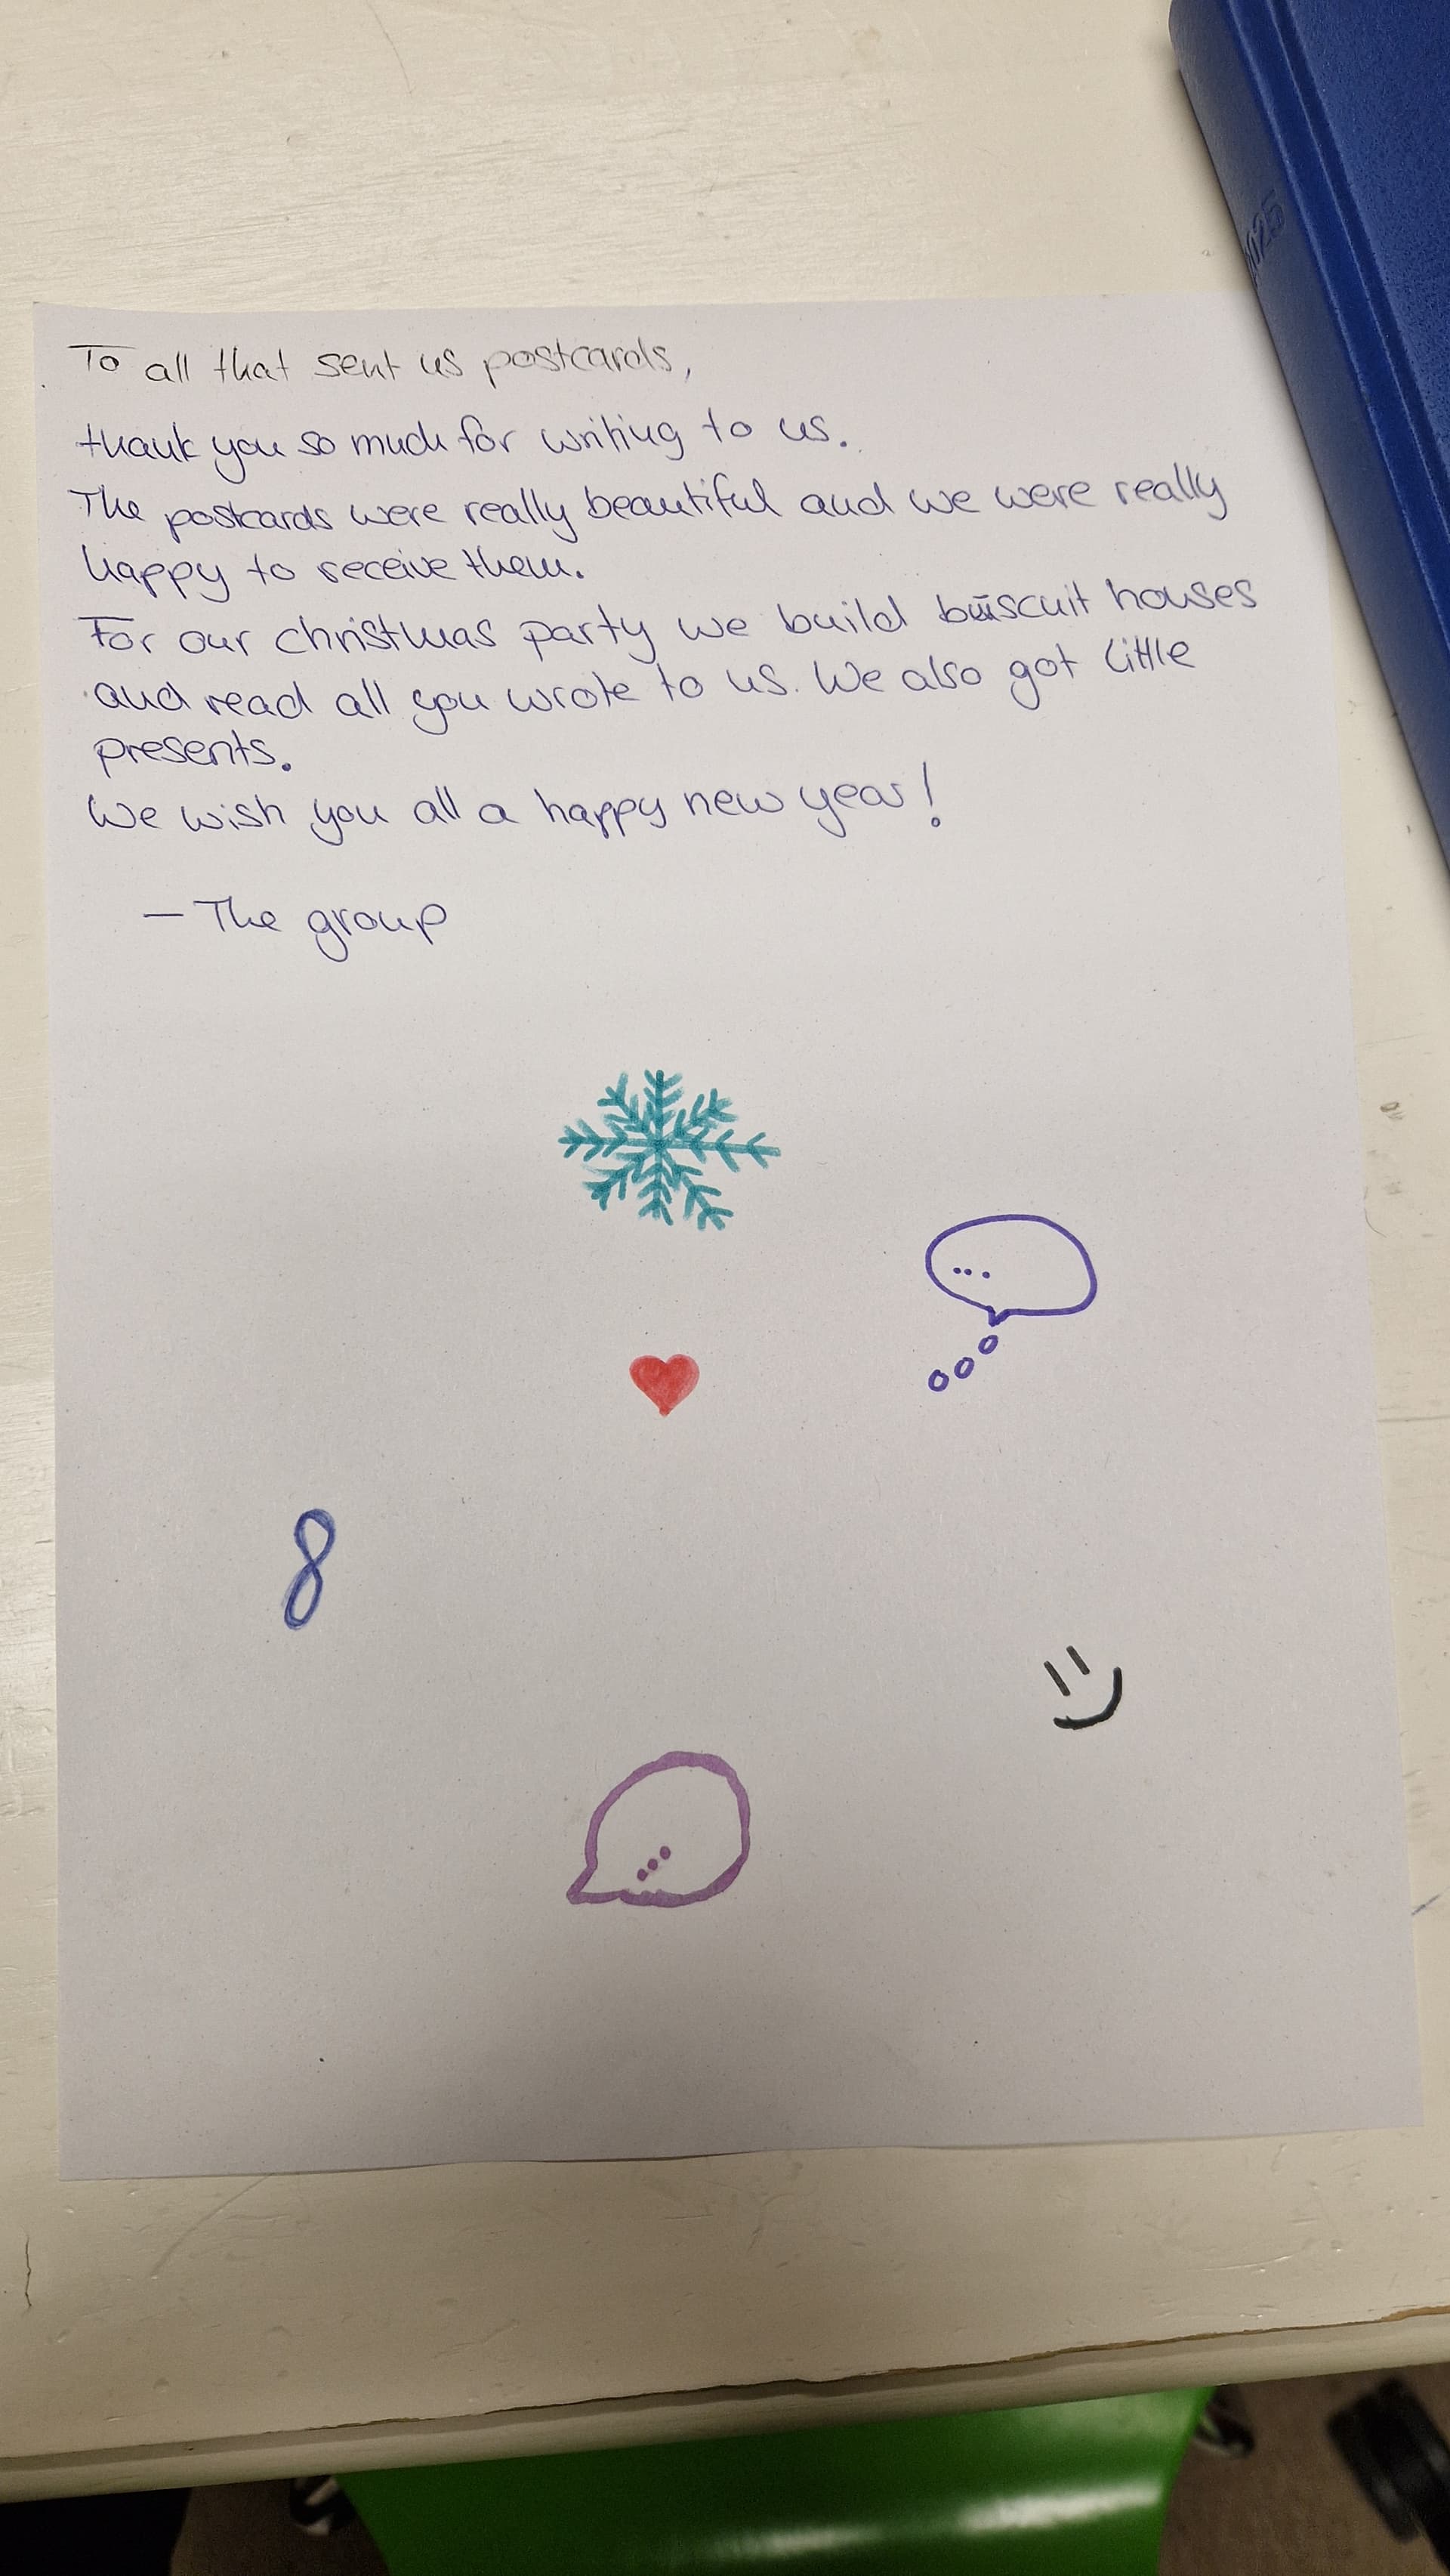 To all that sent us postcards,
thank you so much for writing to us.
The postcards were really beautiful and we were really
happy to receive them.
For our christmas party we build biscuit houses
and read all you wrote to us. We also got little
presents.
We wish you all a happy new year!
— The group
...
8
...
2025